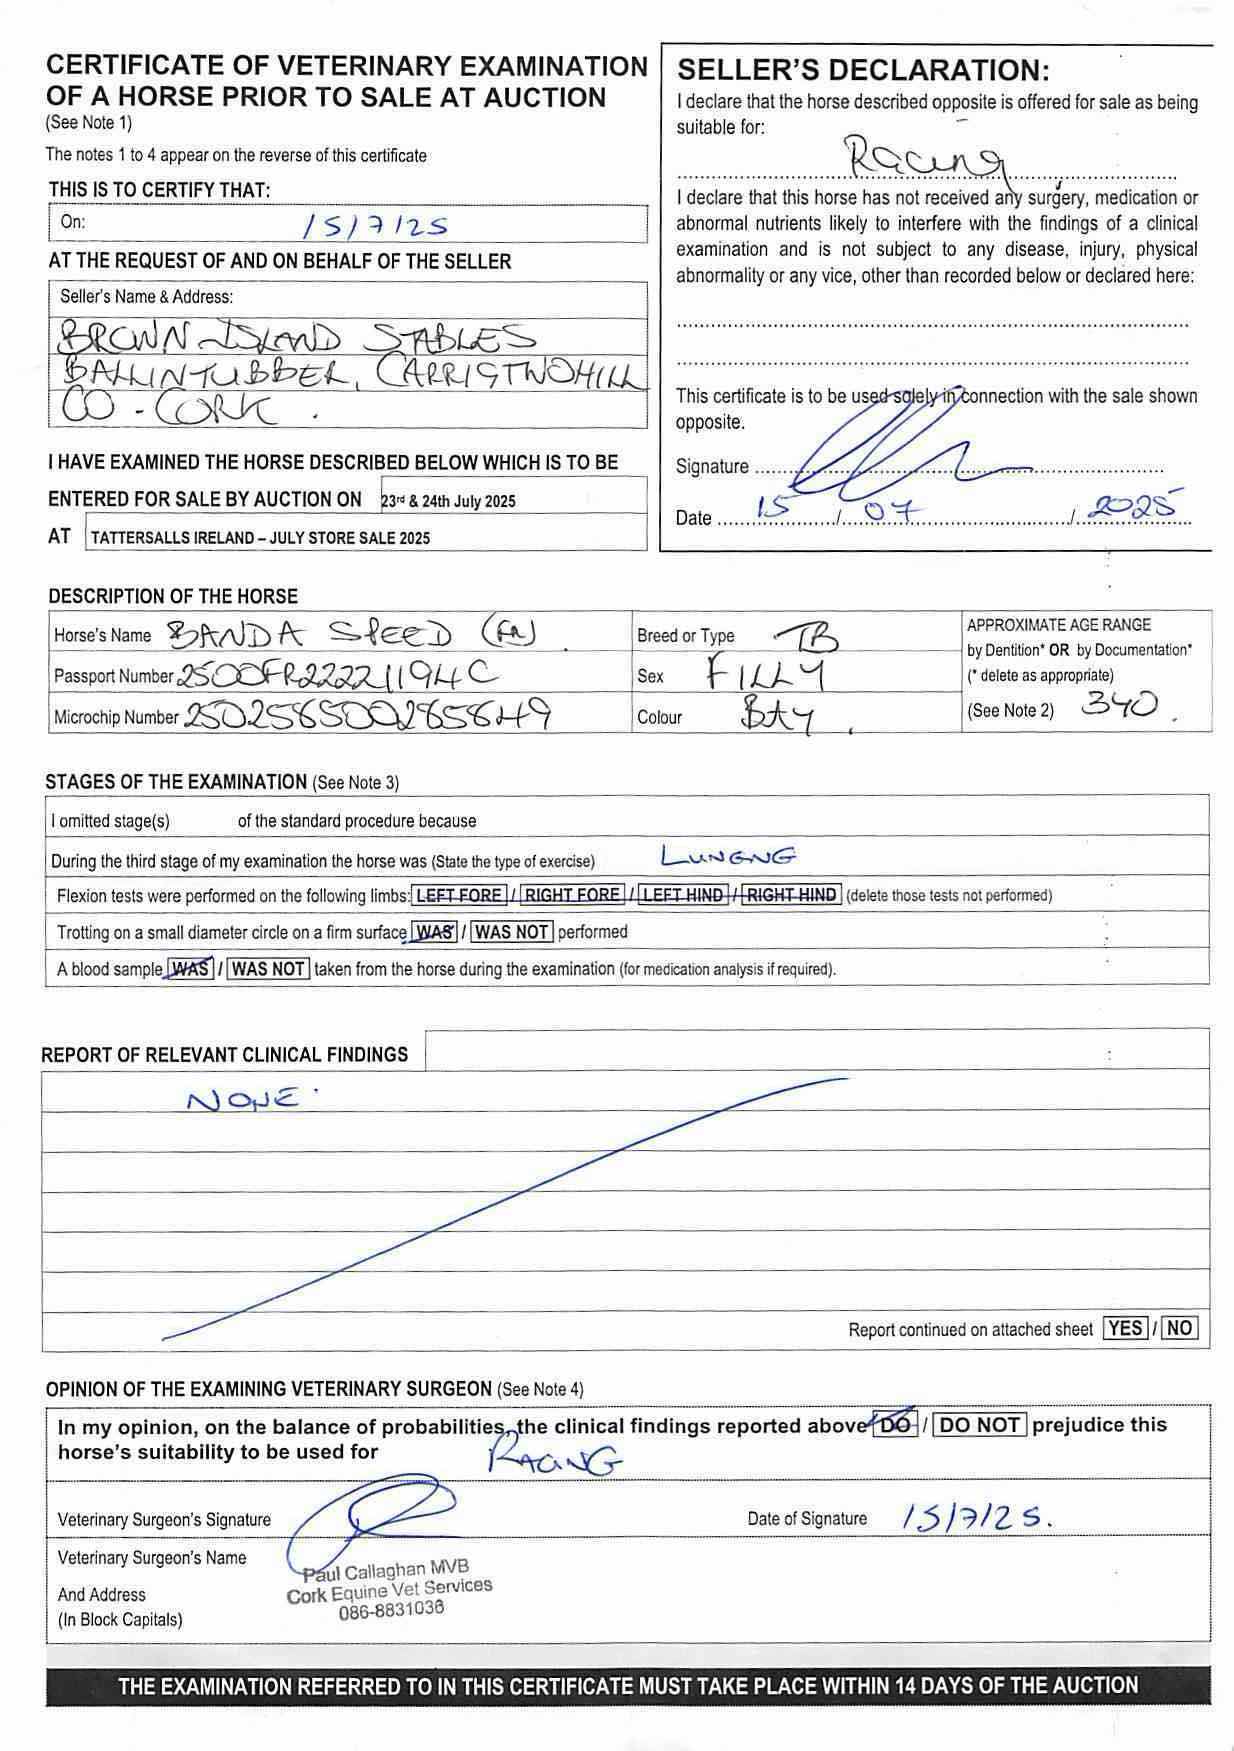 CERTIFICATE OF VETERINARY EXAMINATION
OF A HORSE PRIOR TO SALE AT AUCTION
(See Note 1)
The notes 1 to 4 appear on the reverse of this certificate
THIS IS TO CERTIFY THAT:
On: 15/7/25
AT THE REQUEST OF AND ON BEHALF OF THE SELLER
Seller's Name & Address:
BROWN ISLAND STABLES
BALLINTUBBER, CARRIGTWOHILL
CO-CORK.
I HAVE EXAMINED THE HORSE DESCRIBED BELOW WHICH IS TO BE
ENTERED FOR SALE BY AUCTION ON 23rd & 24th July 2025
AT TATTERSALLS IRELAND – JULY STORE SALE 2025
SELLER'S DECLARATION:
I declare that the horse described opposite is offered for sale as being
suitable for:
Racing
I declare that this horse has not received any surgery, medication or
abnormal nutrients likely to interfere with the findings of a clinical
examination and is not subject to any disease, injury, physical
abnormality or any vice, other than recorded below or declared here:
This certificate is to be used solely in connection with the sale shown
opposite.
Signature
Date 15 / 07 / 2025
DESCRIPTION OF THE HORSE
Horse's Name BANDA SPEED (FR)
Breed or Type TB
Passport Number 2500FR22221194C
Sex FILLY
Microchip Number 250258500285849
Colour BAY.
APPROXIMATE AGE RANGE
by Dentition* OR by Documentation*
(* delete as appropriate)
(See Note 2) 3YO.
STAGES OF THE EXAMINATION (See Note 3)
I omitted stage(s) of the standard procedure because
During the third stage of my examination the horse was (State the type of exercise) LUNGNG
Flexion tests were performed on the following limbs: LEFT FORE / RIGHT FORE / LEFT HIND / RIGHT HIND (delete those tests not performed)
Trotting on a small diameter circle on a firm surface WAS / WAS NOT performed
A blood sample WAS / WAS NOT taken from the horse during the examination (for medication analysis if required).
REPORT OF RELEVANT CLINICAL FINDINGS
NONE.
Report continued on attached sheet YES / NO
OPINION OF THE EXAMINING VETERINARY SURGEON (See Note 4)
In my opinion, on the balance of probabilities, the clinical findings reported above DO / DO NOT prejudice this
horse's suitability to be used for RACING
Veterinary Surgeon's Signature
Date of Signature 15/7/25.
Veterinary Surgeon's Name
And Address
(In Block Capitals)
Paul Callaghan MVB
Cork Equine Vet Services
086-8831036
THE EXAMINATION REFERRED TO IN THIS CERTIFICATE MUST TAKE PLACE WITHIN 14 DAYS OF THE AUCTION